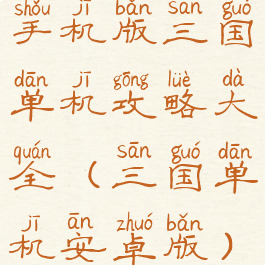 shǒu jī bǎn sān guó
手机版三国
dān jī gōng lüè dà
单机攻略大
quán sān guó dān
全（三国单
jī ān zhuó bǎn
机安卓版）